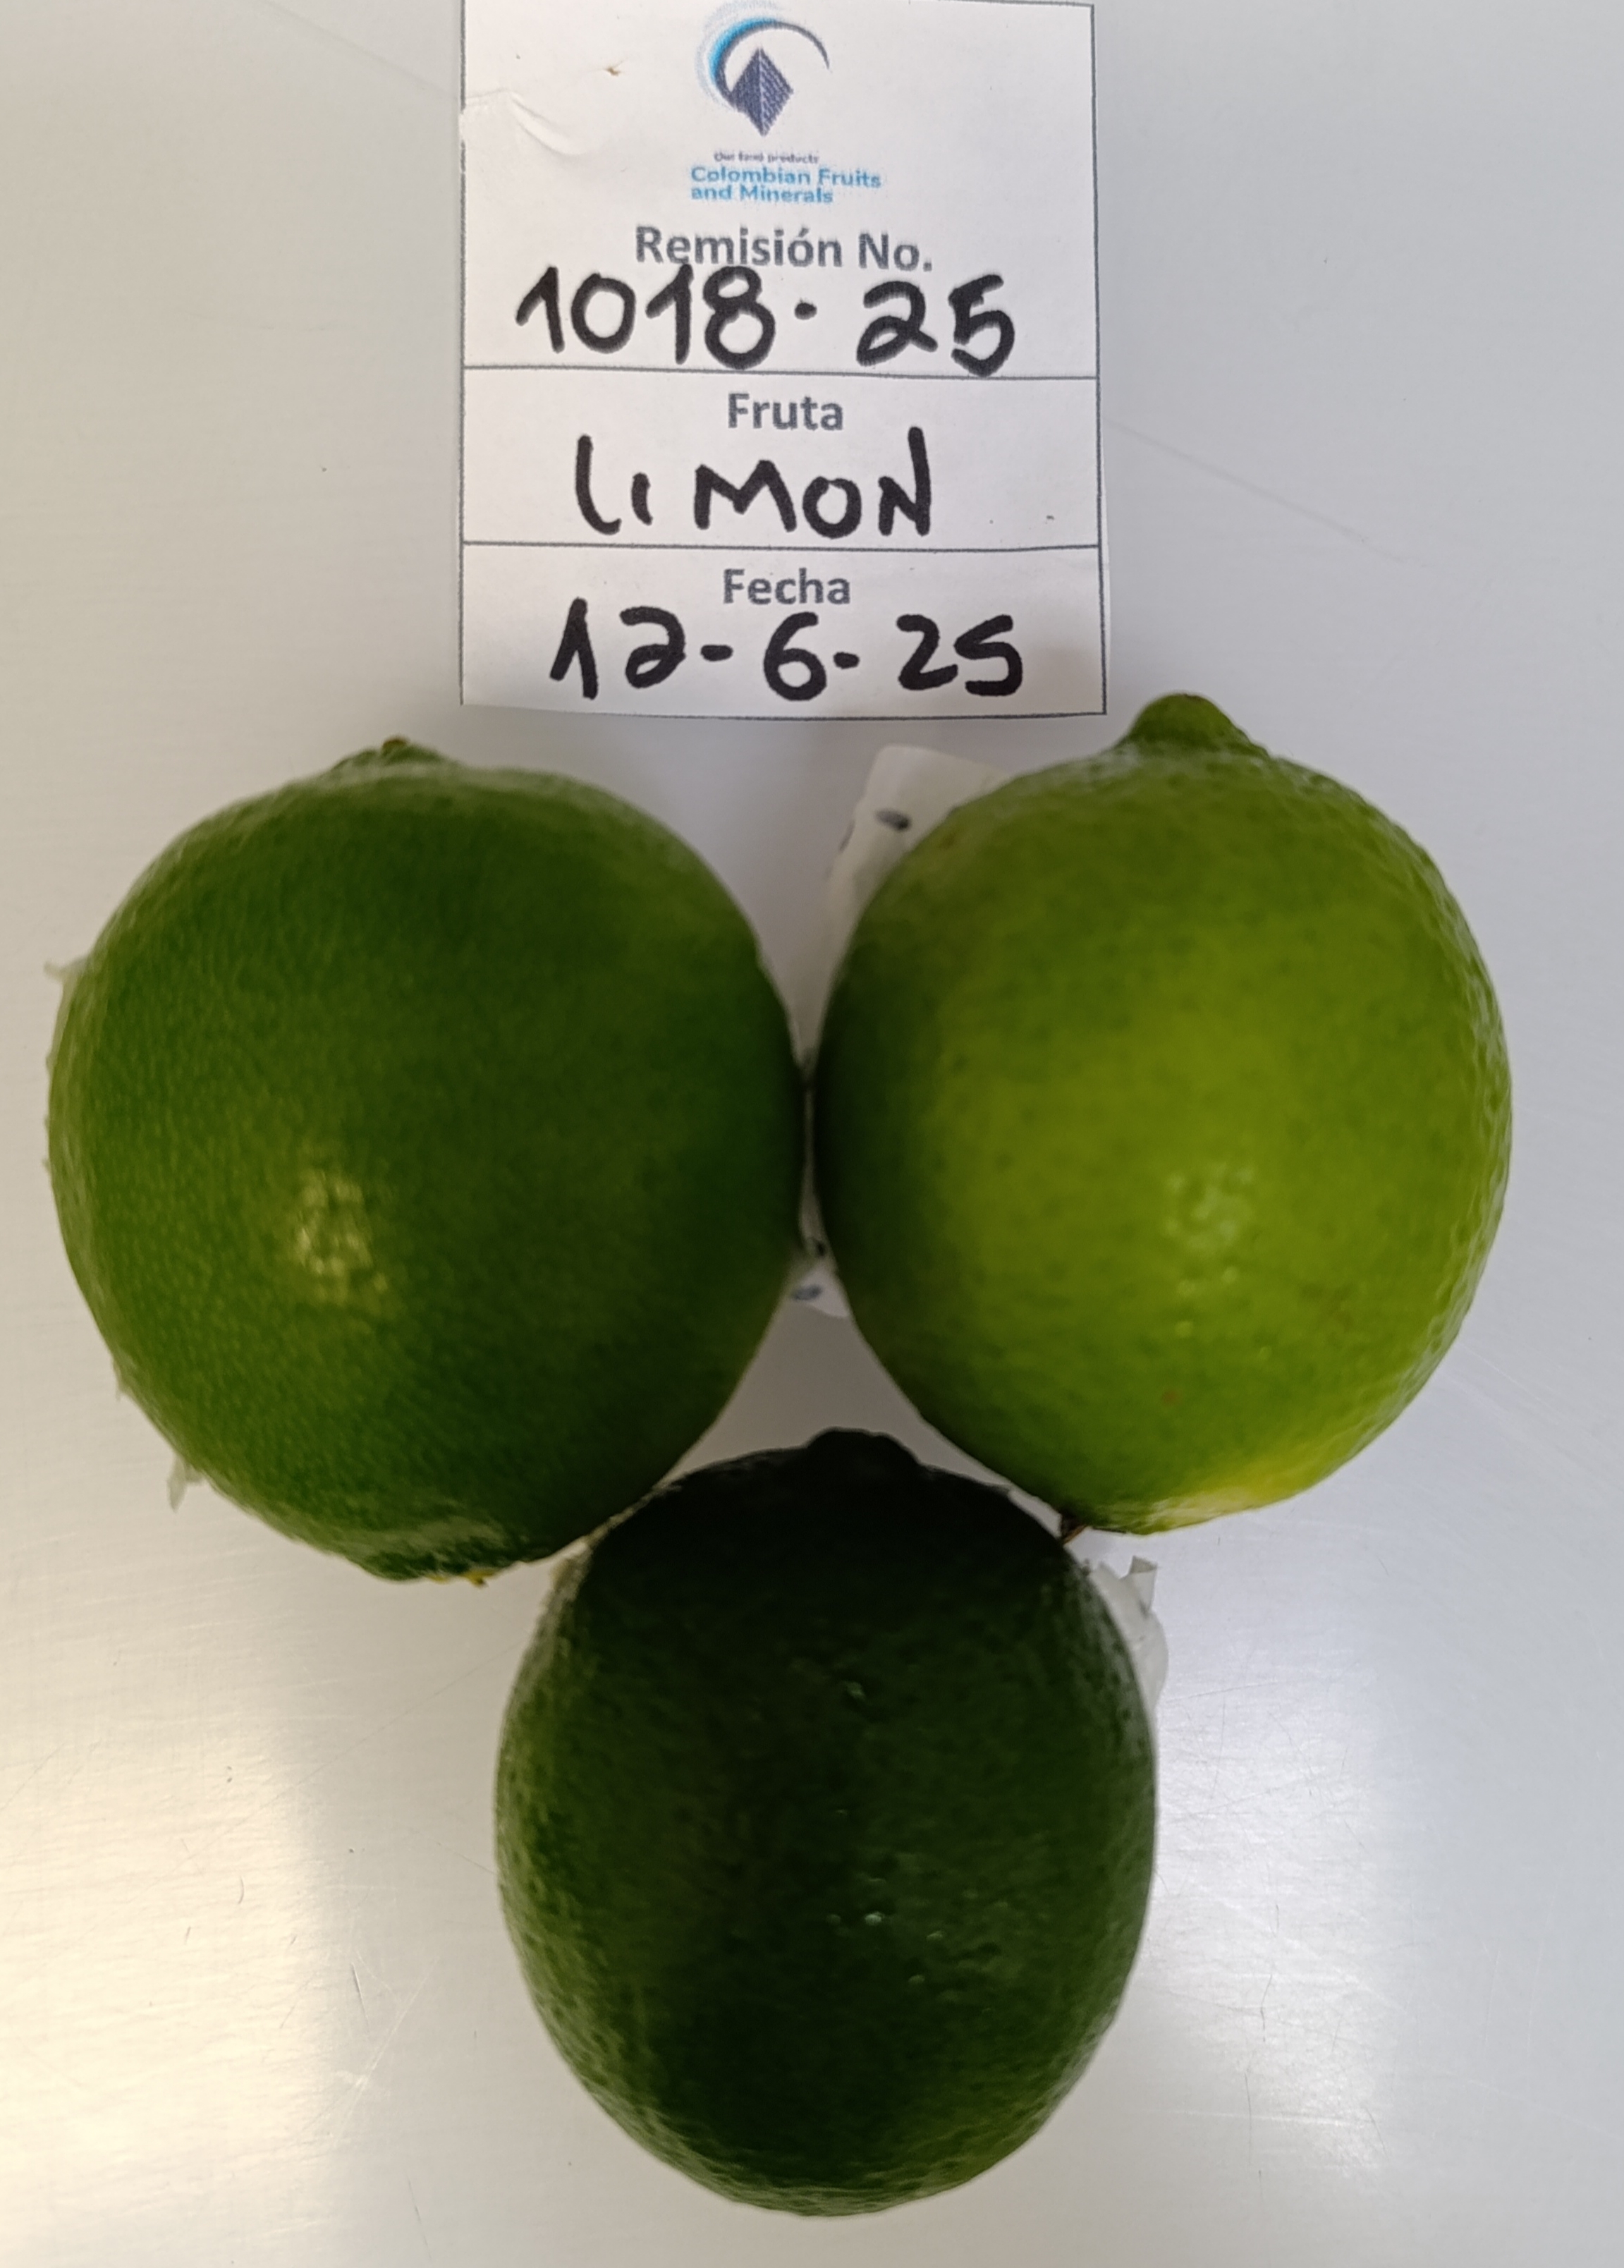 Our food products
Colombian Fruits
and Minerals
Remisión No.
1018. 25
Fruta
LIMON
Fecha
12-6-25